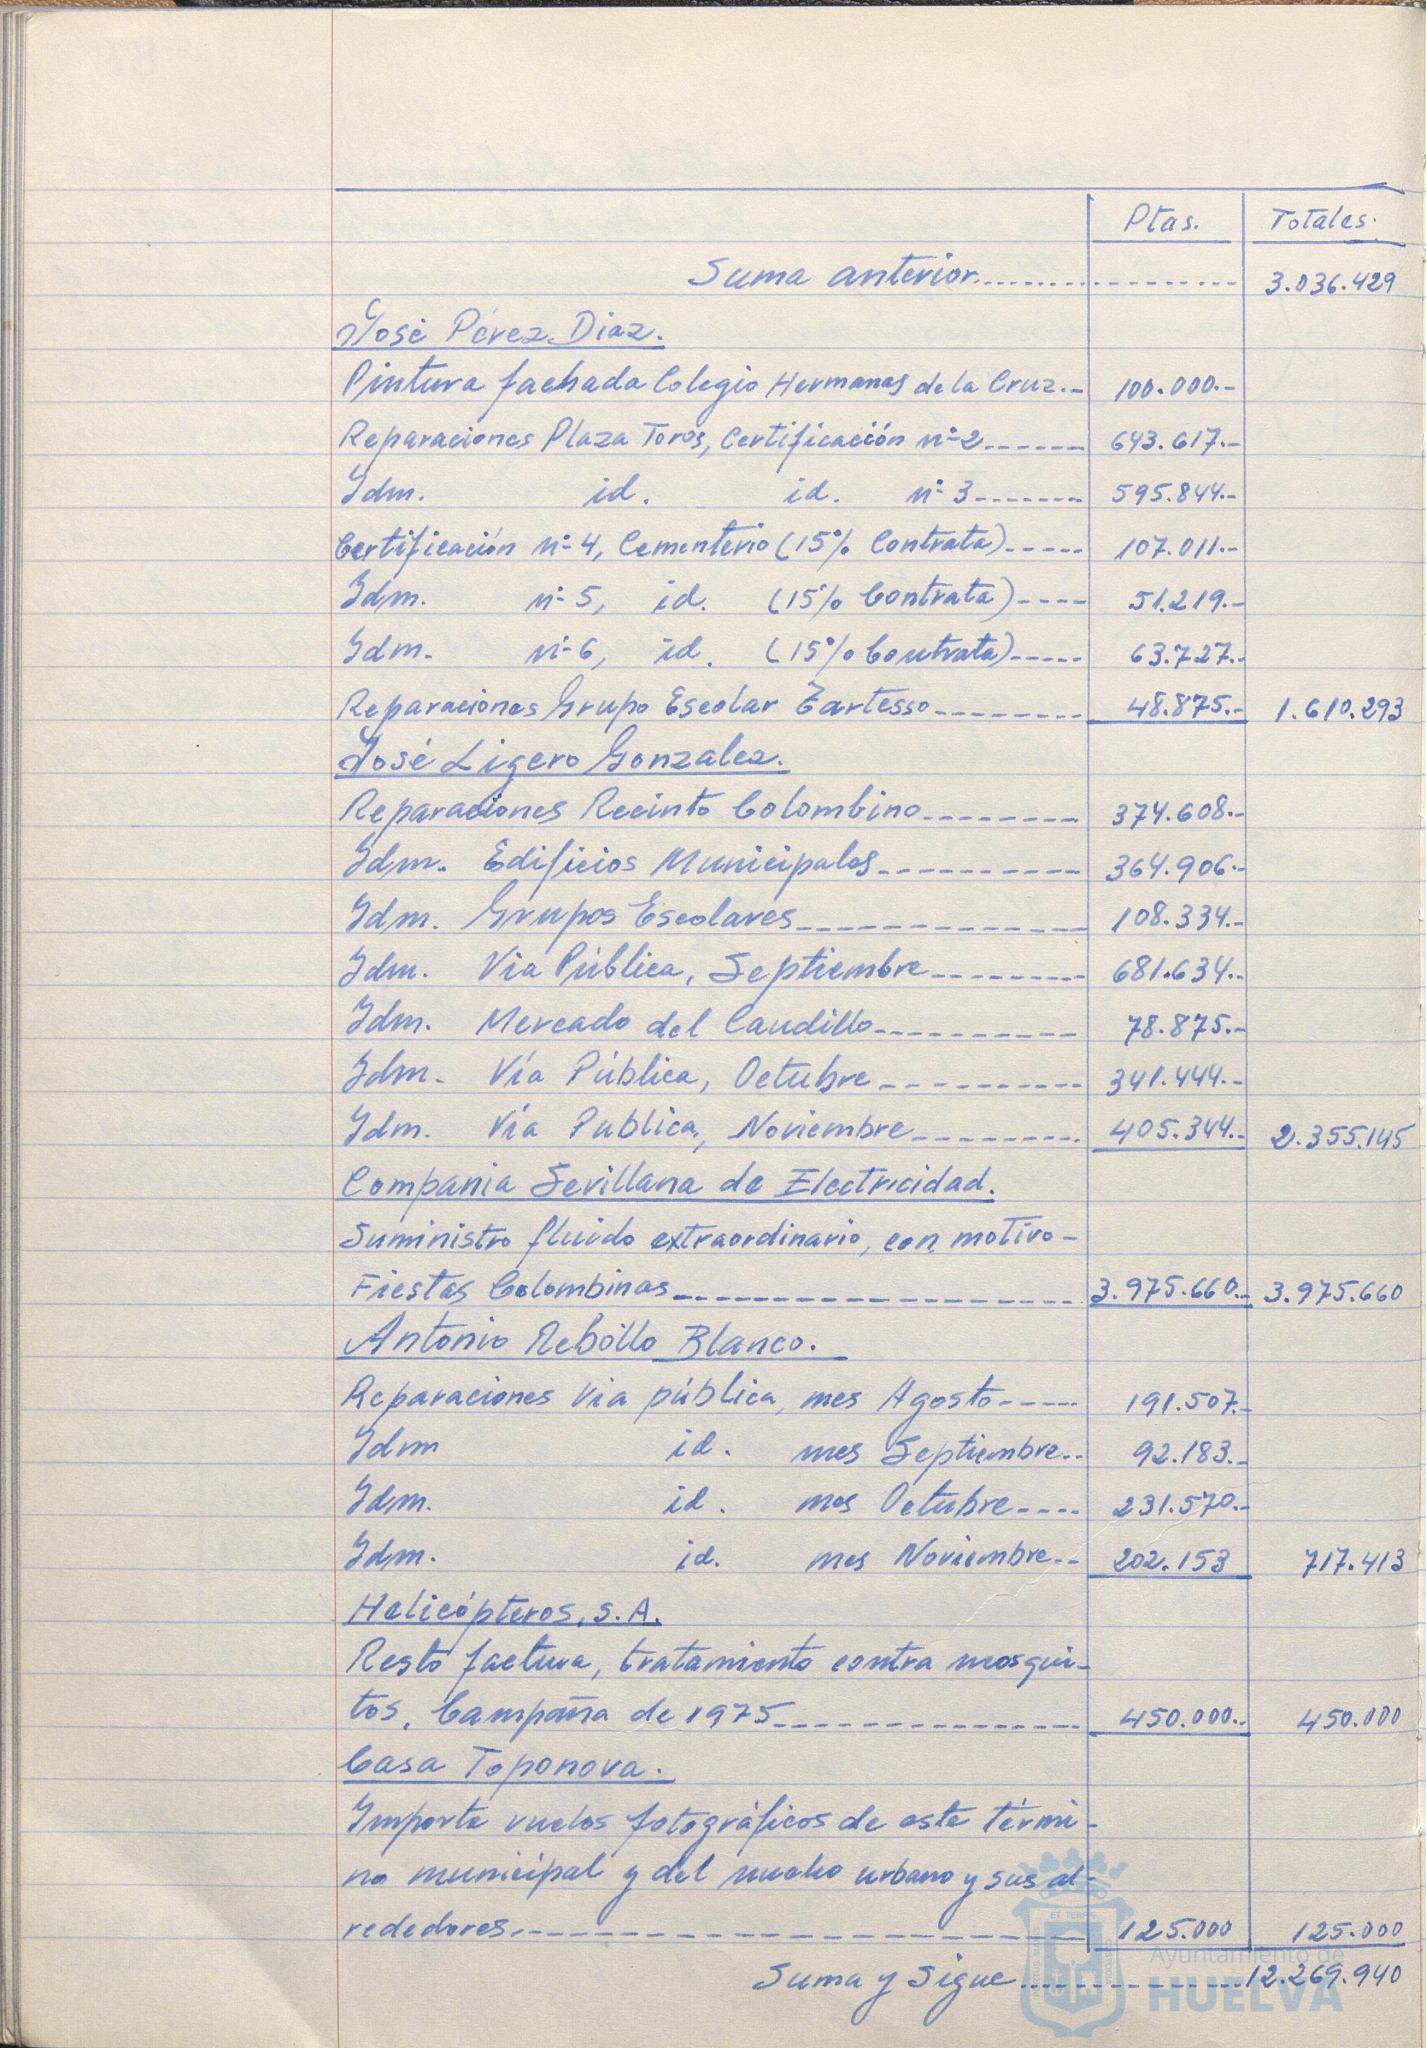 Ptas. Totales.
Suma anterior.................... 3.036.429
José Pérez Diaz.
Pintura fachada Colegio Hermanas de la Cruz.- 100.000.-
Reparaciones Plaza Toros, Certificación nº 2------ 643.617.-
Idm. id. id. nº 3------- 595.844.-
Certificación nº 4, Cementerio (15% Contrata)----- 107.011.-
Idm. nº 5, id. (15% Contrata)---- 51.219.-
Idm. nº 6, id. (15% Contrata)----- 63.727.-
Reparaciones Grupo Escolar Tartesso-------- 48.875.- 1.610.293
José Ligero Gonzalez.
Reparaciones Recinto Colombino-------- 374.608.-
Idm. Edificios Municipales---------- 364.906.-
Idm. Grupos Escolares-------------- 108.334.-
Idm. Via Pública, Septiembre-------- 681.634.-
Idm. Mercado del Caudillo---------- 78.875.-
Idm. Vía Pública, Octubre---------- 341.444.-
Idm. Vía Publica, Noviembre--------- 405.344.- 2.355.145
Compania Sevillana de Electricidad.
Suministro fluido extraordinario, con motivo-
Fiestas Colombinas------------------ 3.975.660.- 3.975.660
Antonio Rebollo Blanco.
Reparaciones Via pública, mes Agosto----- 191.507.-
Idm id. mes Septiembre-- 92.183.-
Idm. id. mes Octubre---- 231.570.-
Idm. id. mes Noviembre-- 202.153 717.413
Helicópteros, S.A.
Resto factura, tratamiento contra mosqui-
tos, Campaña de 1975--------------- 450.000.- 450.000
Casa Toponova.
Importe vuelos fotográficos de este térmi-
no municipal y del nucleo urbano y sus al-
rededores------------------------ 125.000 125.000
Suma y Sigue.................12.269.940
Ayuntamiento de
HUELVA